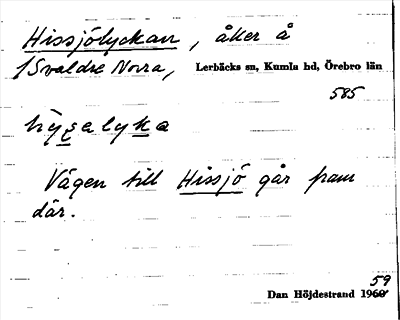 Hissjölyckan, åker å
/Svaldre Norra, Lerbäcks sn, Kumla hd, Örebro län
585
hìsȩalyka
Vägen till Hissjö går fram
där.
59
Dan Höjdestrand 1960